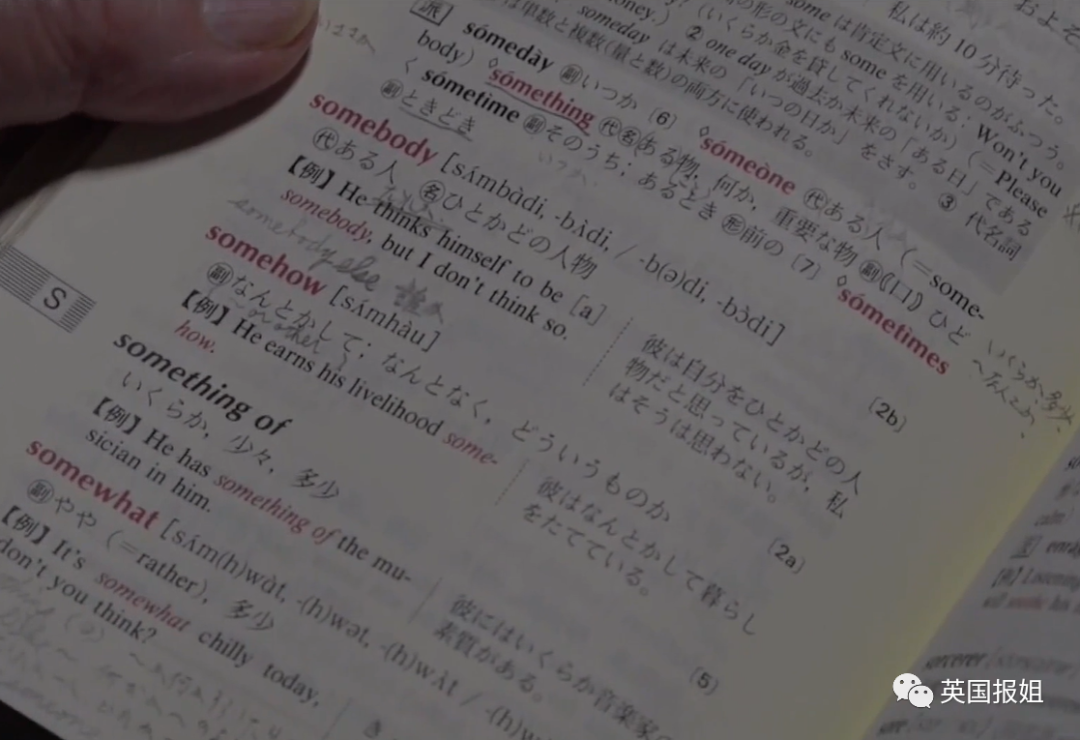 some は肯定文に用いるのがふつう。
の形の文にも some を用いる: Won't you
(いくらか金を貸してくれないか) (=Please
② one day が過去か未来の「ある日」である
someday は未来の「いつの日か」をさす。 ③ 代名詞
は単数と複数(量と数)の両方に使われる。
私は約 10 分待った。
およそ
派
sómedày 副 いつか [6] ◊sómeòne 代 ある人 (=some-
body) ◊sómething 代 名 ある物, 何か, 重要な物 副 《口》 ひど
く sómetime 副 そのうち; あるとき 形 前の [7] ◊sómetimes
副 ときどき
somebody [sʌ́mbɑ̀di, -bʌ̀di, / -b(ə)di, -bɔ̀di]
代 ある人 名 ひとかどの人物 [2b]
【例】 He thinks himself to be [a]
somebody, but I don't think so.
彼は自分をひとかどの人
物だと思っているが, 私
はそうは思わない。
somebody else
somehow [sʌ́mhàu]
副 なんとかして; なんとなく, どういうものか [2a]
【例】 He earns his livelihood some-
how.
彼はなんとかして暮らし
をたてている。
something of
いくらか, 少々, 多少 [5]
【例】 He has something of the mu-
sician in him.
彼にはいくらか音楽家の
素質がある。
somewhat [sʌ́m(h)wɑ̀t, -(h)wət, -(h)wʌ̀t / -(h)w
副 やや (=rather), 多少
【例】 It's somewhat chilly today,
don't you think?
S
英国报姐